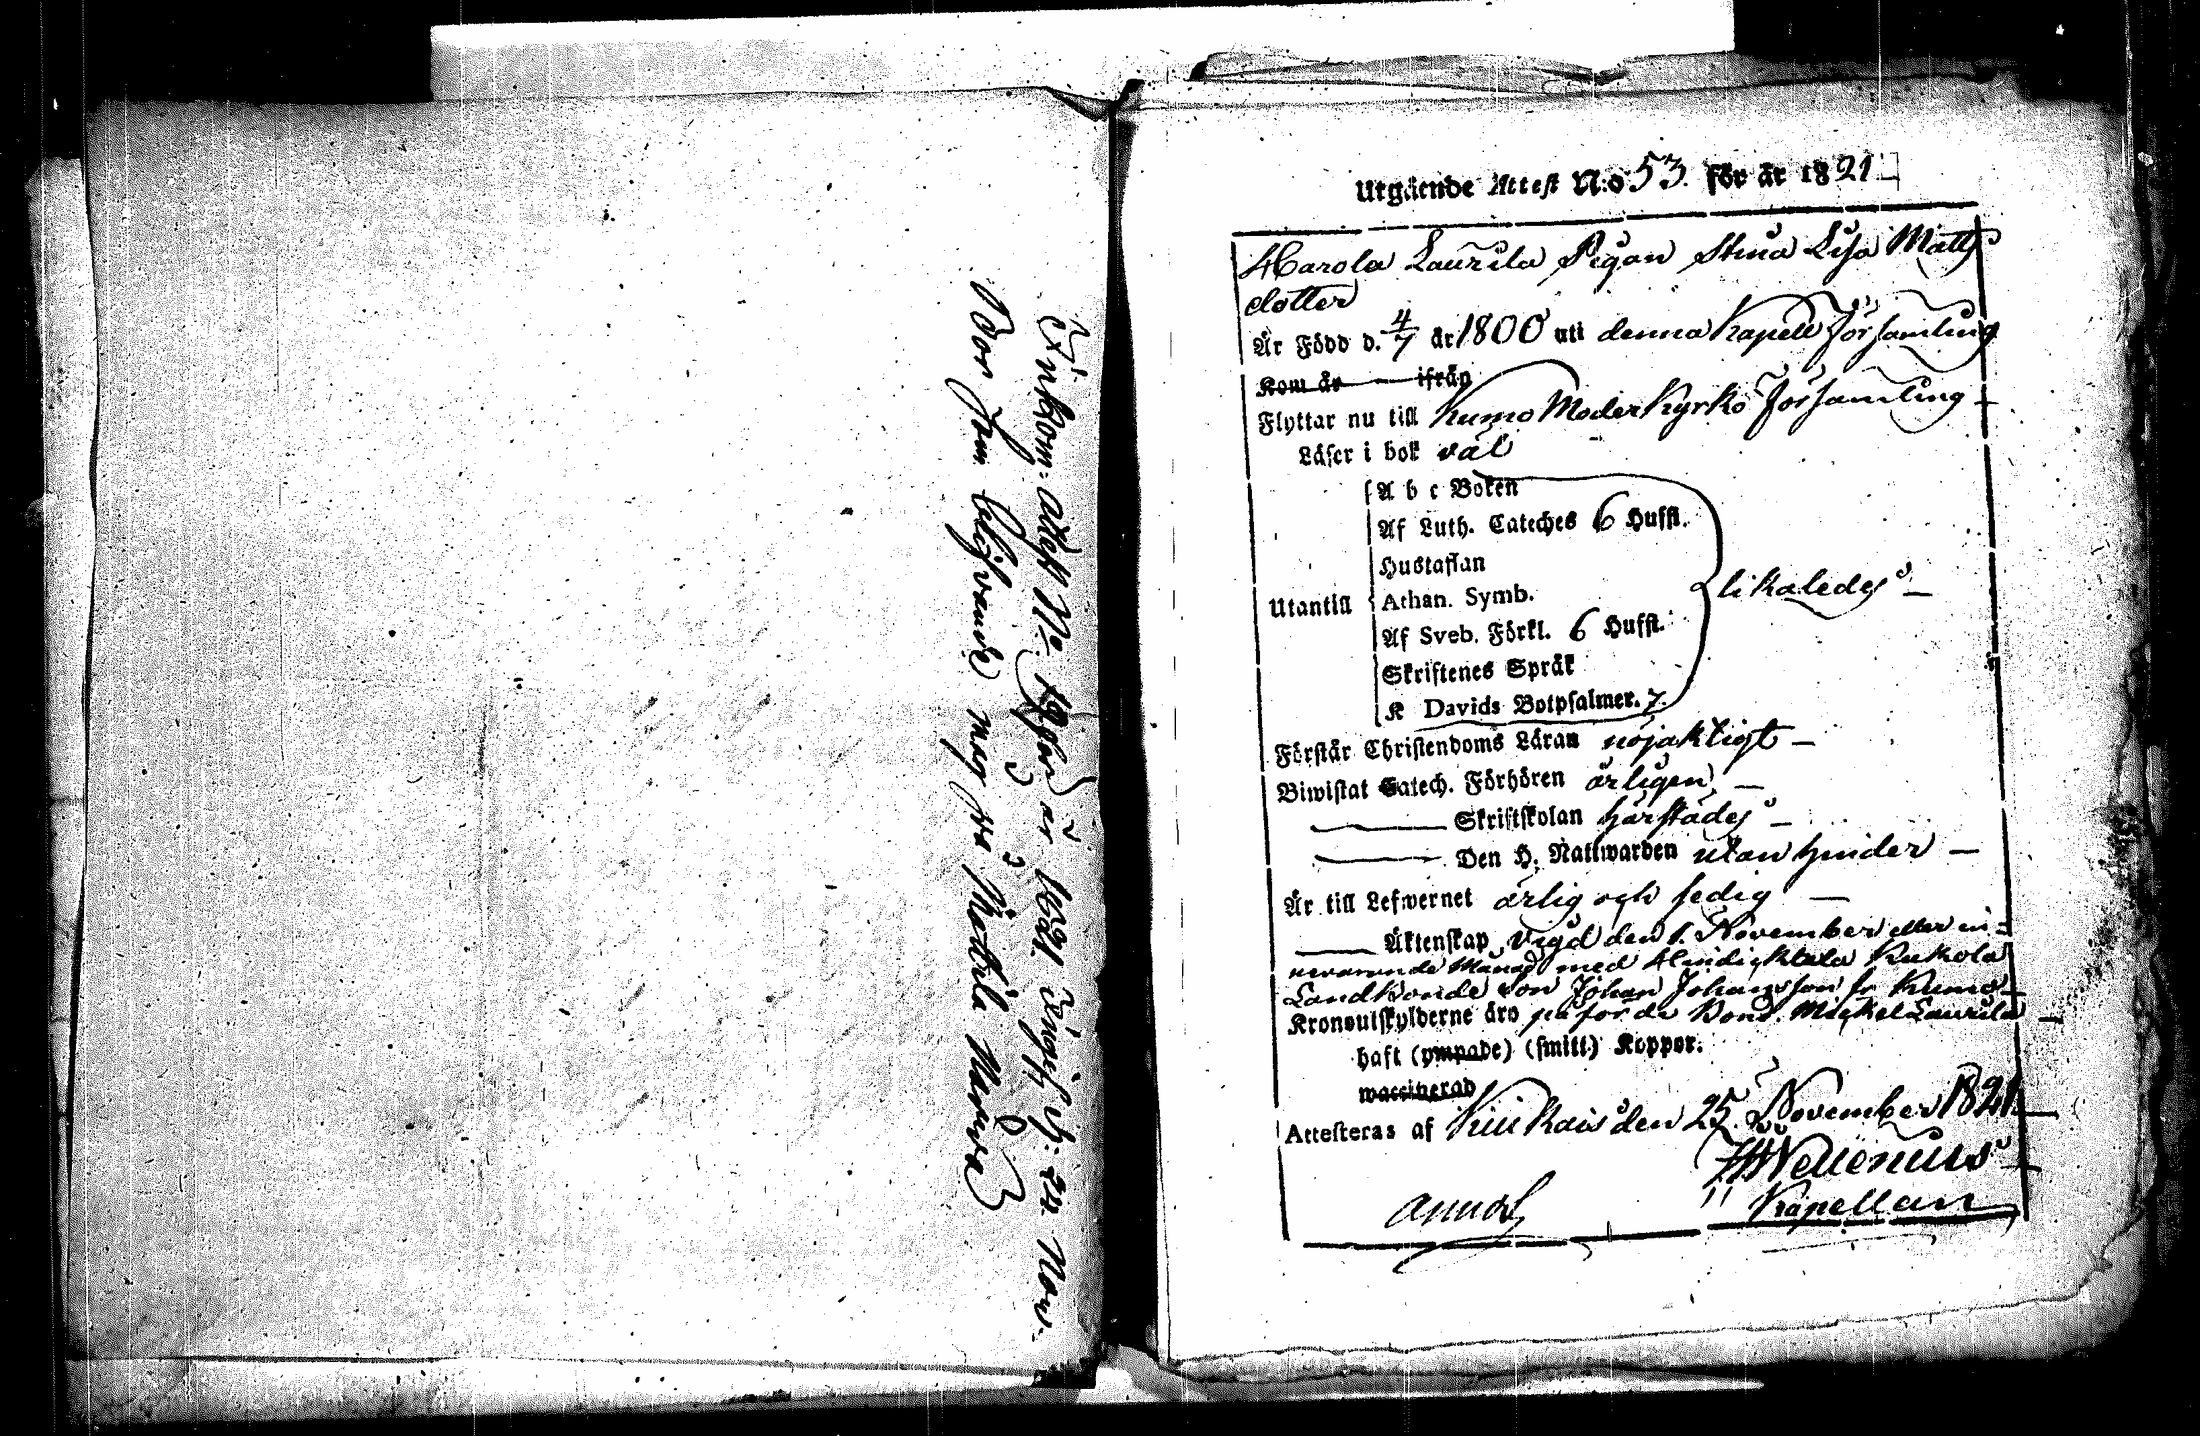 Inkom: attest No 19 för år 1821 ingift d: 24 Nov.
Bor som
mag på Knuttila Mxxx
Utgående Attest N:o 53. för år 1821
Harola Laurila Pigan Stina Lisa Matts
dotter
Är Född d. 4/7 år 1800 uti denna Kapell Församling
Kom år ifrån
Flyttar nu till Kumo Moder Kyrko Församling
Läser i bok väl
Utantill
A b c Boken
Af Luth. Cateches 6 Hufst.
Hustaflan
Athan. Symb.
Af Sveb. Förkl. 6 Hufst.
Skriftenes Språk
K Davids Botpsalmer. 7.
likaledes
Förstår Christendoms Läran nöjaktigt
Biwistat Catech. Förhören årligen
Skriftskolan härstädes
Den H. Nattwarden utan hinder
Är till Lefwernet ärlig och sedig
Äktenskap Vigd den 1. November eller in-
nevarande Månad med Kukola
Landbonde son Johan Johansson fr Kumo
Kronoutskylderne äro påförde Bond. Mickel Laurila
haft (ympade) (smitt) Koppor.
waccinerad
Attesteras af Kiukais den 25. November 1821
Wellenius
Kapellan